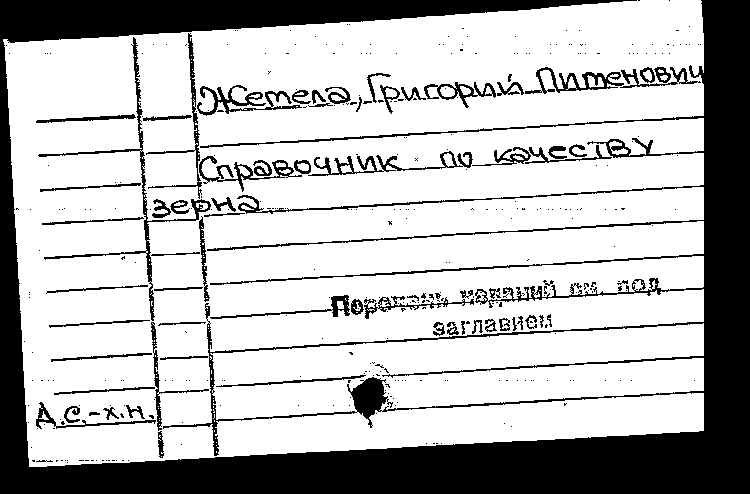 Жемела, Григорий Пименович
Справочник по качеству
зерна.
Перечень изданий см. под
заглавием
д.с.-х.н.